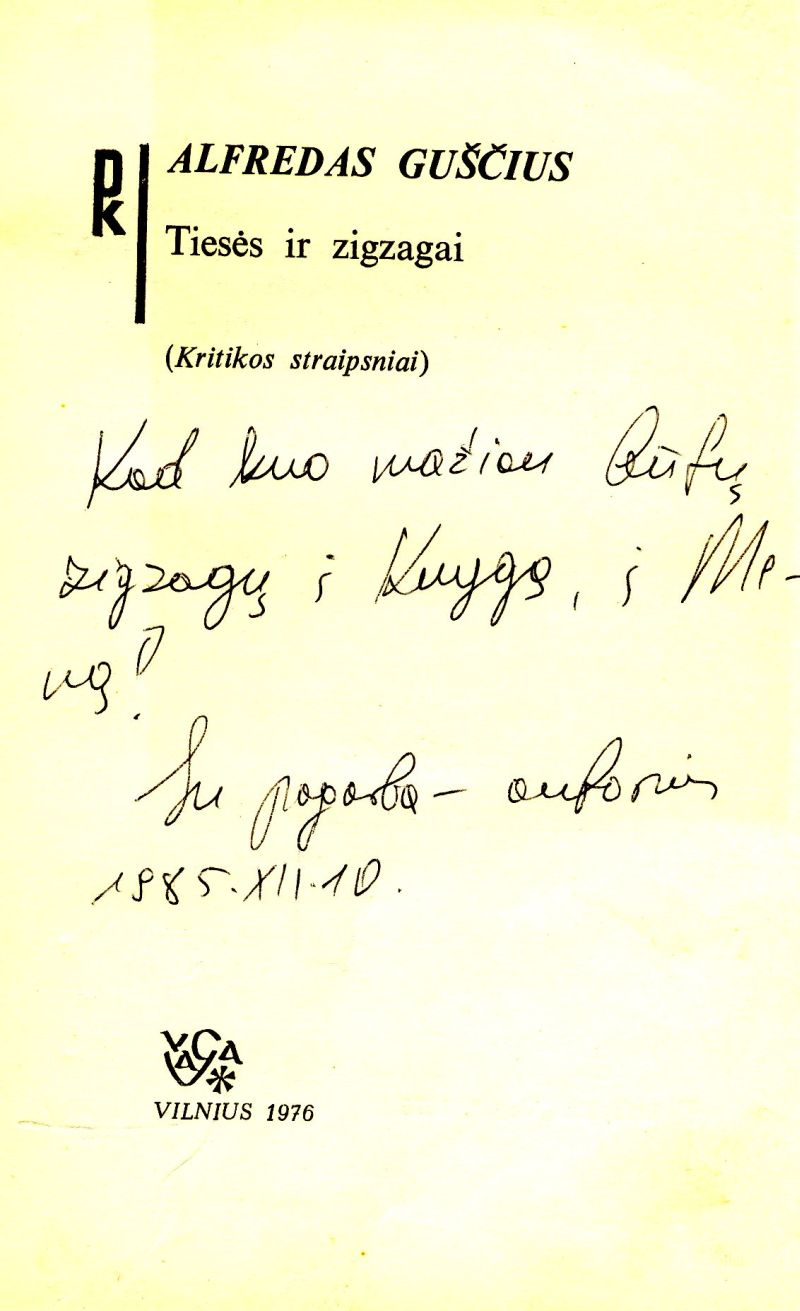 pk
ALFREDAS GUŠČIUS
Tiesės ir zigzagai
(Kritikos straipsniai)
Kad kuo mažiau būtų
zigzagų į Knygą, į Me-
ną!
Su pagarba – autorius
1985.XII.10.
VAGA
VILNIUS 1976